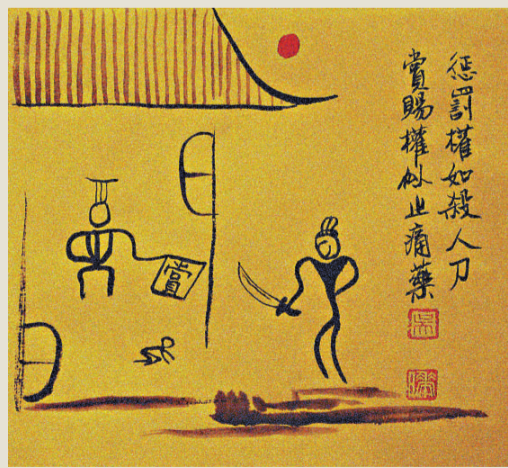 惩罰權如殺人刀
賞賜權似止痛藥
賞